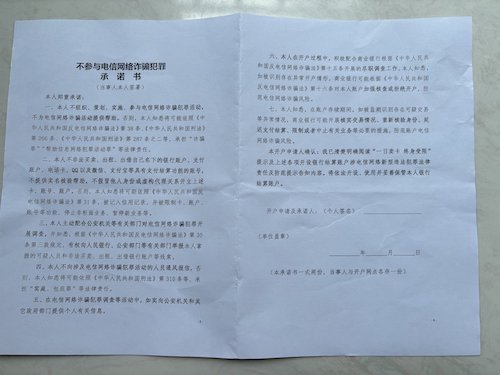 不参与电信网络诈骗犯罪
承 诺 书
（当事人本人签署）
本人郑重承诺：
一、本人不组织、策划、实施、参与电信网络诈骗犯罪活动，
不为电信网络诈骗活动提供帮助。否则，本人知悉将可能依照《中
华人民共和国反电信网络诈骗法》第 38 条、《中华人民共和国刑法》
第 266 条、《中华人民共和国刑法》第 287 条之二等，承担"诈骗
罪""帮助信息网络犯罪活动罪"等法律责任。
二、本人不非法买卖、出租、出借自己名下的银行账户、支付
账户、电话卡、QQ 以及微信、支付宝等具有支付结算功能的账号，
不提供实名核验帮助，不假冒他人身份或虚构代理关系开立上述
卡、账号、账户。否则，本人知悉将可能依照《中华人民共和国反
电信网络诈骗法》第 31 条，被记入信用记录，并被限制卡、账户、
账号等功能、停止非柜面业务、暂停新业务等。
三、本人主动配合公安机关等有关部门对电信网络诈骗犯罪开
展调查，并知悉：依照《中华人民共和国反电信网络诈骗法》第 30
条第三款规定，有权向人民银行、公安部门等有关部门举报本人掌
握的可疑人员和非法买卖、出租、出借银行账户等线索。
四、本人不向涉及电信网络诈骗犯罪活动的人员通风报信，否
则，本人知悉将可能依照《中华人民共和国刑法》第 310 条等，承
担"窝藏、包庇罪"等法律责任。
五、在电信网络诈骗犯罪调查等活动中，如实向公安机关和其
它政府部门提供个人有关信息。
六、本人在开户过程中，积极配合商业银行根据《中华人民共
和国反电信网络诈骗法》第十五条开展的尽职调查工作。本人知悉，
如被识别存在异常开户情形，商业银行可能根据《中华人民共和国
反电信网络诈骗法》第十六条对本人账户加强核查或拒绝开户，防
范电信网络诈骗风险。
七、本人知悉，在账户存续期间，如被监测识别存在可疑交易
等异常情况，商业银行可能开展核实交易情况、重新核验身份、延
迟支付结算、限制或者中止有关业务等必要的措施，防范账户电信
网络诈骗风险。
本开户申请人确认：我已清楚明确阅读"一日卖卡 终身受限"
提示及上述各项开设银行结算账户涉电信网络新型违法犯罪法律
责任及防范提示告知内容，将依法开设、使用并妥善保管本人银行
结算账户。
开户申请及承诺人：（个人签名）
（单位盖章）
年 月 日
（本承诺书一式两份，当事人与开户网点各存一份）